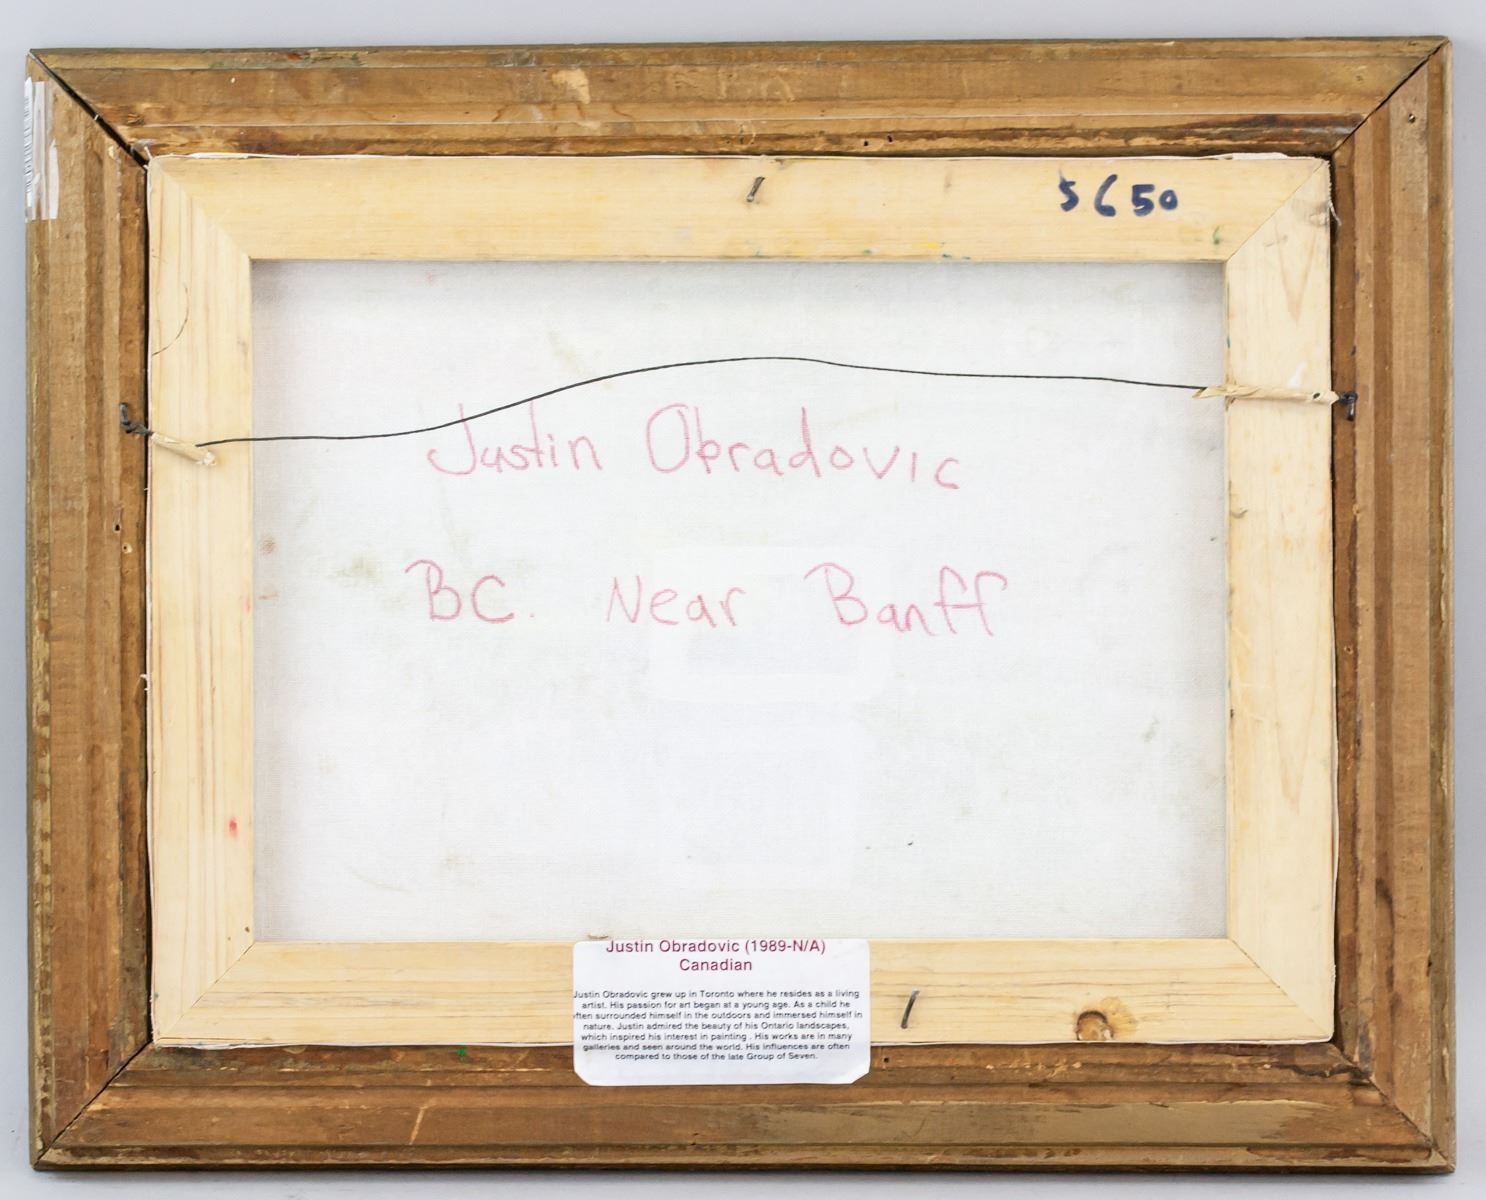 5650
Justin Obradovic
BC. Near Banff
Justin Obradovic (1989-N/A)
Canadian
Justin Obradovic grew up in Toronto where he resides as a living
artist. His passion for art began at a young age. As a child he
ften surrounded himself in the outdoors and immersed himself in
nature. Justin admired the beauty of his Ontario landscapes,
which inspired his interest in painting . His works are in many
galleries and seen around the world. His influences are often
compared to those of the late Group of Seven.